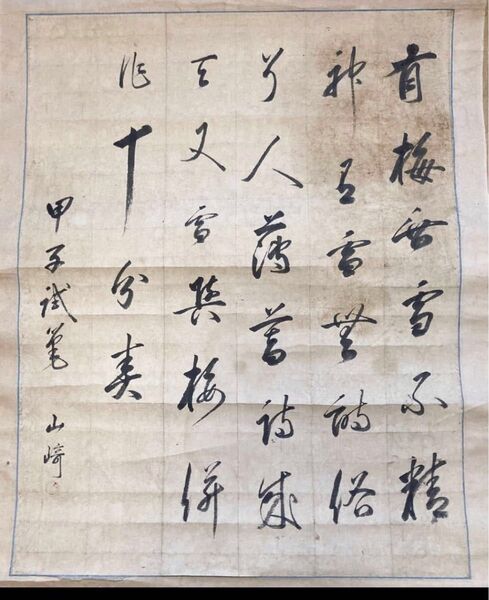 有梅無雪不精
神有雪無詩俗
了人薄暮詩成
天又雪與梅併
作十分春
甲子試筆 山崎